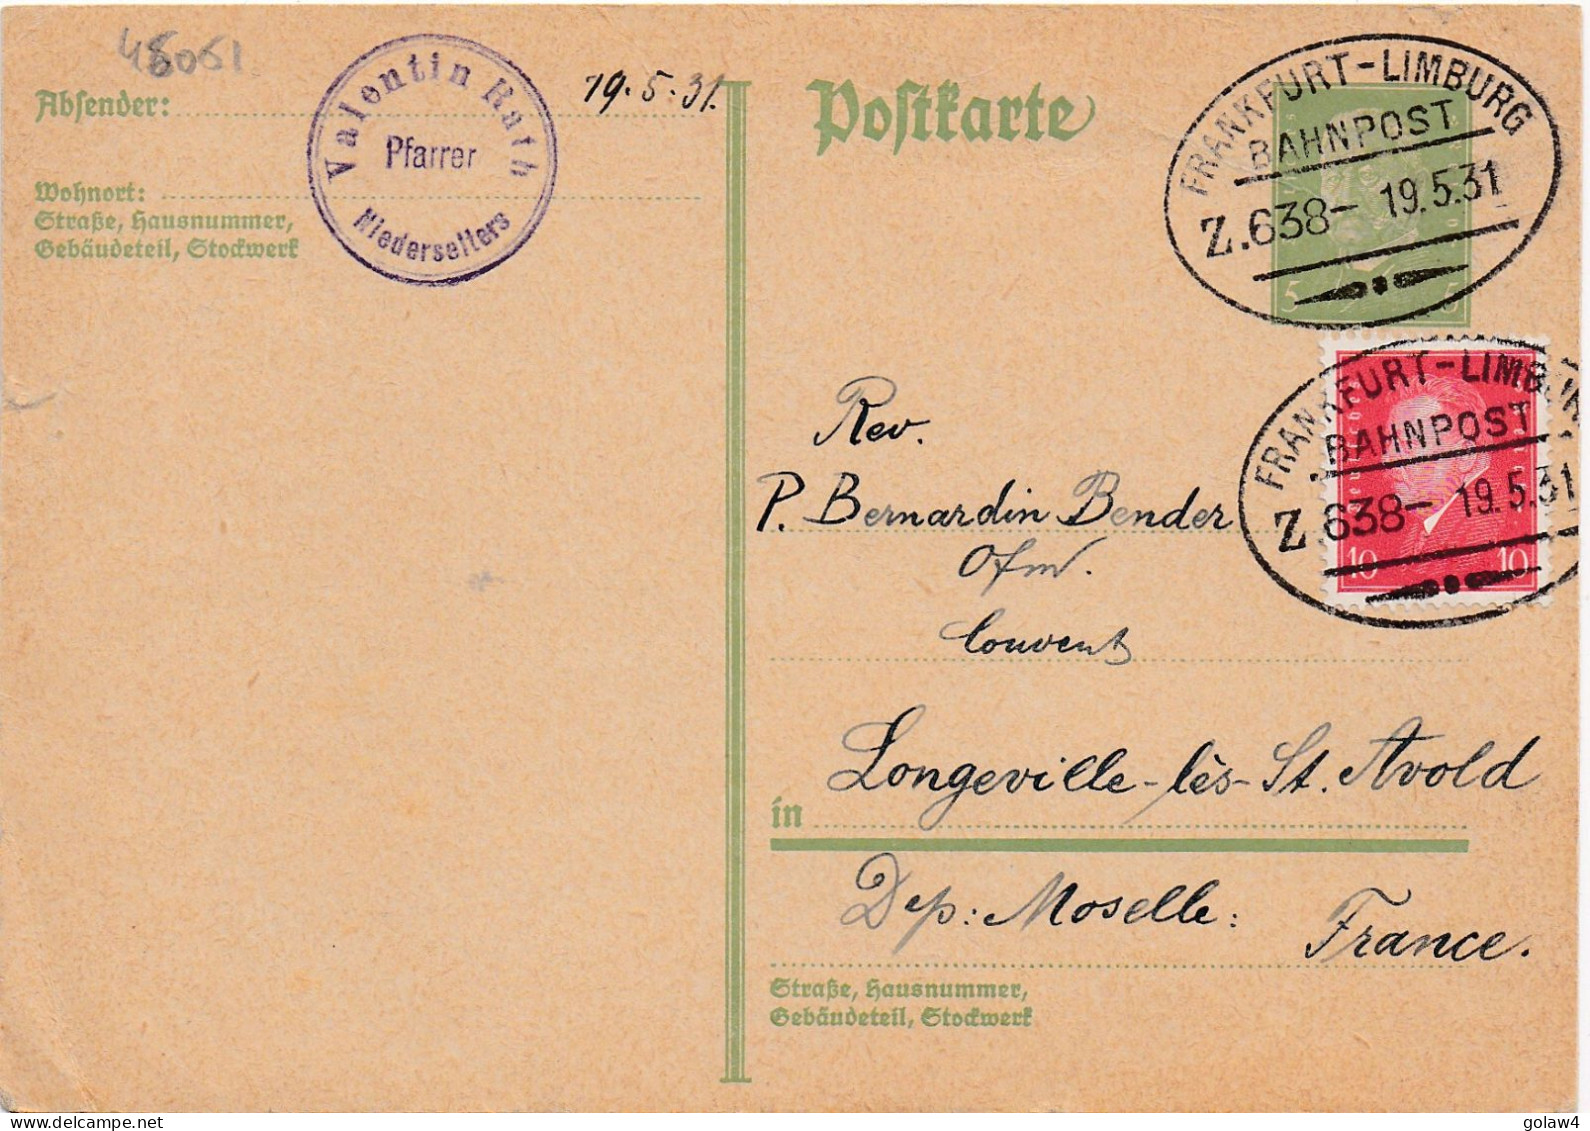 46061
Absender:
Valentin Rath
Pfarrer
Niederselters
19.5.31.
Wohnort:
Straße, Hausnummer,
Gebäudeteil, Stockwerk
Postkarte
FRANKFURT-LIMBURG
BAHNPOST
Z.638- 19.5.31
5 5
FRANKFURT-LIMBURG
BAHNPOST
Z.638- 19.5.31
10 10
Rev.
P. Bernardin Bender
Ofm.
Couvent
Longeville-lès-St. Avold
in
Dep: Moselle:
France.
Straße, Hausnummer,
Gebäudeteil, Stockwerk
www.delcampe.net
golaw4